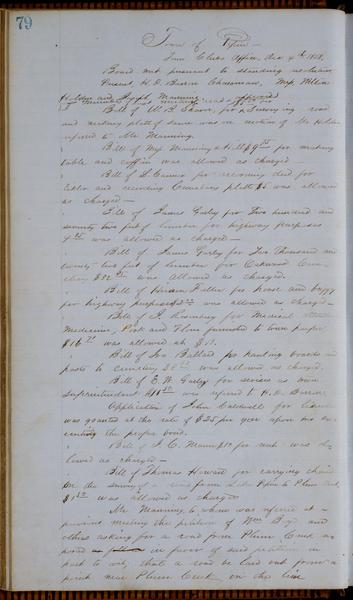 79
Town of Pepin
Town Clerks Office, Dec 4th 1858
Board met pursuant to standing resolution
Present, H. D. Barron Chairman, Messrs
Holden and Supt Manning
Bill of for Surveying road
and making platt of same was on motion of Mr Holden
referred to Mr Manning.
Bill of Manning & Hill for making
table and coffin was allowed as charged
Bill of for recording deed for
and recording Cemetery platt $5 was allowed
as charged
Bill of James Gurley for Two hundred and
seventy two feet of lumber for highway purposes
was allowed as charged
Bill of James Gurley for Two Thousand and
twenty two feet of lumber for Oakwood Ceme-
tery was Allowed as charged.
Bill of Hiram Fuller for horse and buggy
for highway purposes was allowed as charged
Bill of for Medical
Medicines, Pork and Flour furnished to town pauper
$16 was allowed at
Bill of Ira Ballard for hauting boards and
posts to cemetery was allowed as charged,
Bill of E. W. Gurley for services as town
Superintendent was referred to H. D. Barron
Application of John Caldwell for license
was granted at the rate of $25 per year upon his ex-
ecuting the proper bond.
Bill of J. C. Mann for rent was al-
lowed as charged
Bill of Thomas Howard for carrying chain
on the survey of a road from Lake Pepin to Plum Creek,
was allowed as charged
Mr Manning, to whom was referred at a
previous meeting the petition of Wm Boyd and
others asking for a road from Plum Creek re-
ported in favor of said petition in
part to wit, that a road be laid out from a
point near Plum Creek on the line